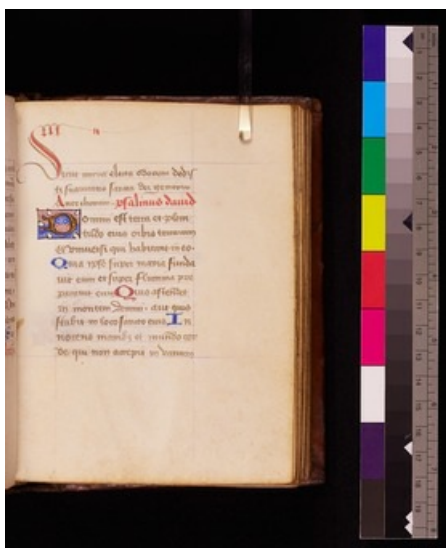 Sicut mirra electa odorem dedis
ti suavitatem sancta dei genitrix
psalmus david
Domini est terra et pleni
tudo eius orbis terrarum
et universi qui habitant in eo
Quia ipse super maria funda
vit eum et super flumina pre
paravit eum Quis ascendet
in montem domini aut quis
stabit in loco sancto eius In
nocens manibus et mundo cor
de qui non accepit in vanum